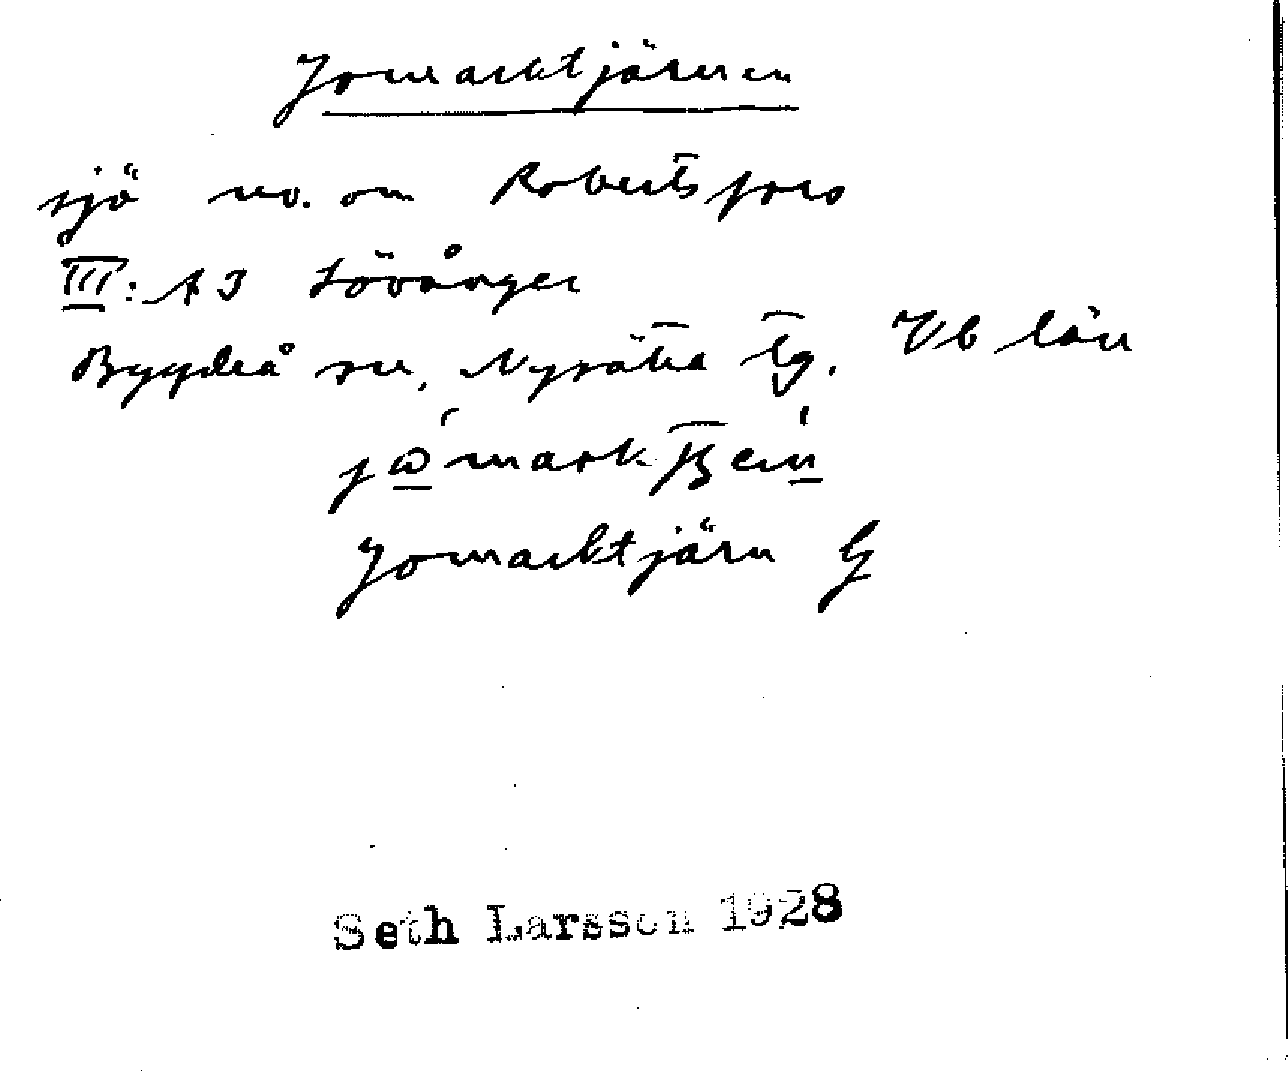 Jomarktjärnen
sjö no. om Robertsfors
III: Lövånger
Bygdeå sn, Nysätra tg. Vb län
Jomarktjärn G
Seth Larsson 1928